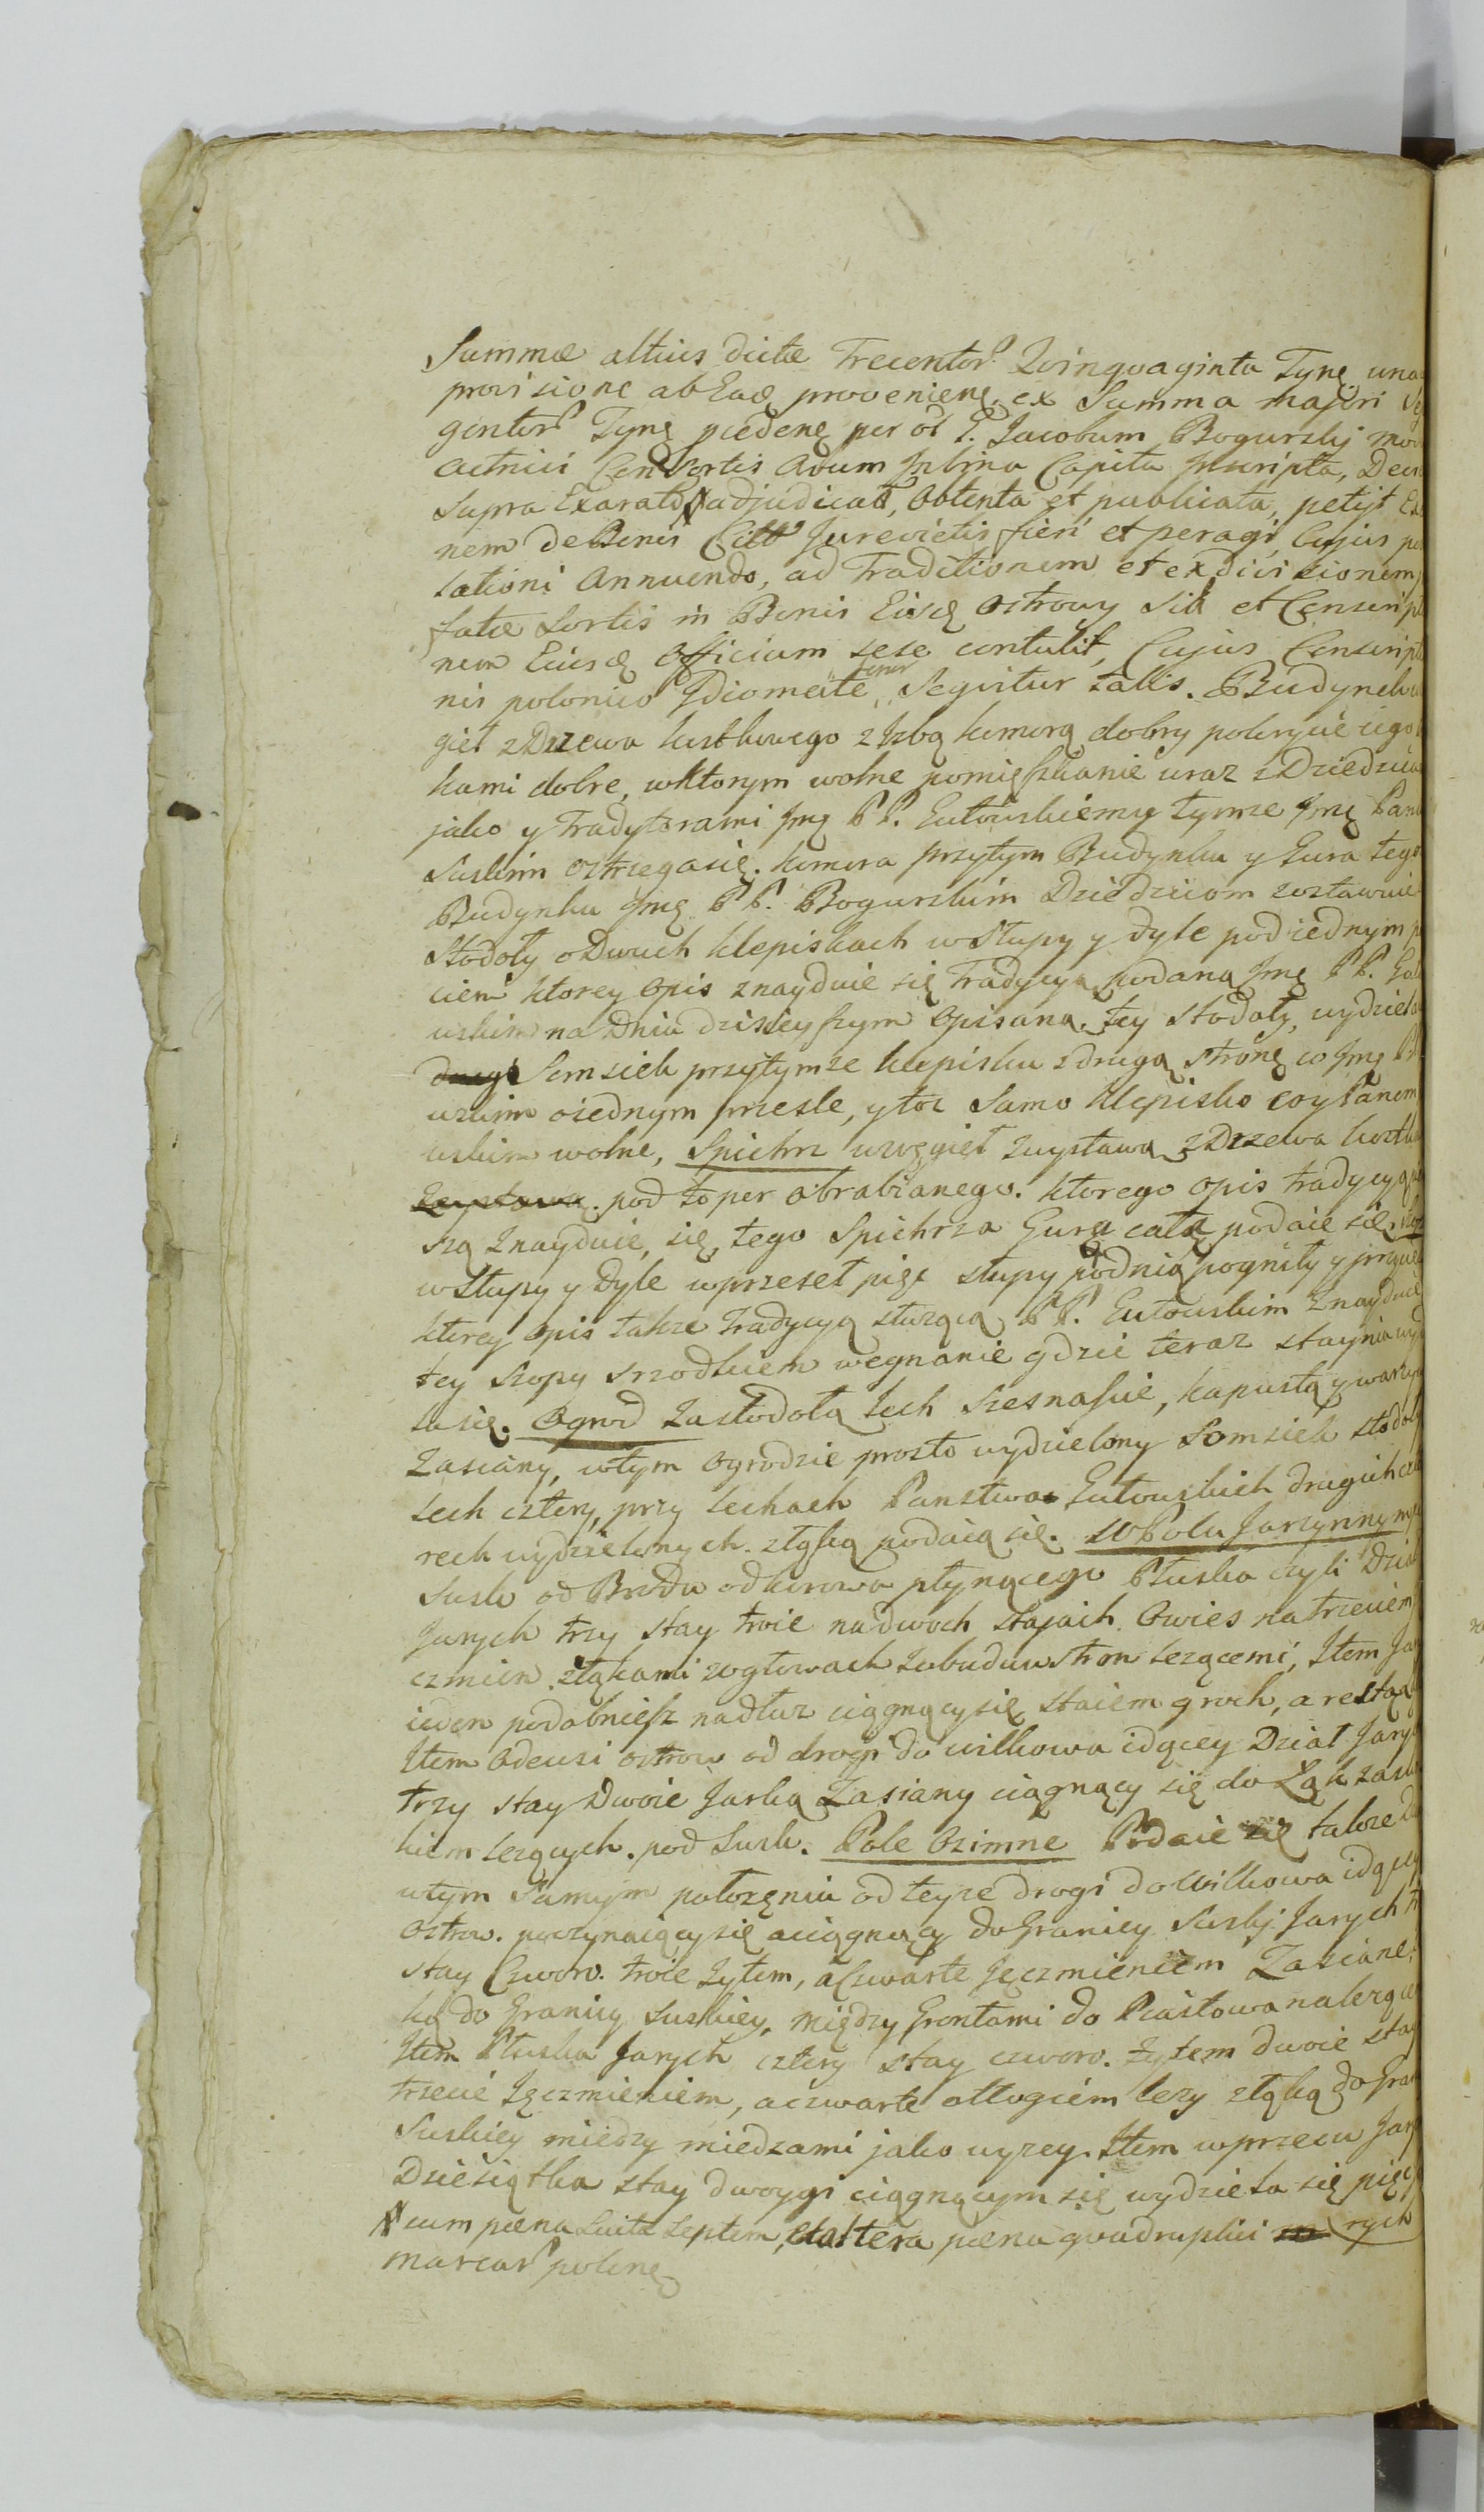 Summæ altius dictæ Trecentor. Quinquaginta Tynę una
provisione ab Eadę provenienę. ex Summa majori
gentor Tynę pcedenę per ol. G. Jacobum Bogurskj mod
Consortis Avum Inbina Capita Inscripta, Decr
Supra Exarato adjudicat, obtenta et publicata, petijt
nem de Bonis Citt Jurevictis fieri et peragi, Cujus
lationi Annuendo, ad Traditionem et exdivisionem
fatæ Sortis in Bonis Eisdę Ostrowy Sit et Conscrip
nem Eiusdę Officium sese contulit, Cujus Conscript
nis polonico Idiomate tenor Seqvitur talis. Budynek w
gieł z Drzewa kostkowego z Izbą komorą dobry pokrycie iego
kami dobre, wktorym wolne pomięszkanie wraz z Dziedzica
jako y Tradytorami Jmę PP. Gutowskiemy tymze Jmę Pano
Suskim ostrzegasię. komora przytym Budynku y Gura tego
Budynku Jmę PP. Bogurskim Dziedzicom zostawuie
Stodoły odwuch klepiskach wsłupy y dyle podiednym
ciem ktorey opis znayduie się Tradycyą podaną Jmę PP. Gut
wskim na Dniu dzisieyszym opisana. tey stodoły, wydziela
Somsiek przytymze klepisku z drugą stronę co Jmę PP.
wskim oiednym przesle, y toz Samo klepisko coy Panom
wskim wolne, Spichrz wwęgieł zwystawą z Drzewa kostk
pod toper obrabianego. ktorego opis tradycyą
szą znayduie, się, tego Spichrza Gurą całą podaie się,
wsłupy y dyle wprzeseł pięc słupy podnią pogniły y
ktorey opis takze Tradycyą sluzącą PP. Gutowskim znayduie
tey szopy srzodkiem wegnanie gdzie teraz staynia
lasię. Ogrod Zastodołą Lech szesnascie, kapustą y warzy
Zasiany, wtym ogrodzie prosto wydzielony Somsiek stodoły
Lech cztery, przy Lechach Panstwa Gutowskich drugich
rech wydzielonych. złąką podaią się. WPolu Jarzynnym
Susk od Brodu od kirowa płynącego Płuska czyli Dział
Jarych trzy stay troie nadwoch stajach. Owies na trzeciem
czmien. złąkami wgłowach zobuduw stron lezącemi, Item Ja
ieden podobniesz nadłuz ciągnącysię staiem groch, a resztą
Item odewsi ostrow od drogi do wilkowa idącey Dział Jary
trzy stay Dwoie Jarką Zasiany ciągnący się do Łąk zasi
kiem lezących. pod Susk. Pole Ozimne Podaie się takze
wtym Samym połozeniu od teyze drogi do Wilkowa idącey
Ostrow. poczynaiącysię aciągnący do Granicy Suskj. Jarych
stay Czworo. troie zytem, aczwarte jęczmieniem Zasiane.
ką do Granicy Suskiey, między Grontami do Piastowa nalezące
Item Płuska Jarych cztery stay czworo. zytem dwoie stay
trzecie jęczmieniem, aczwarte odłogiem lezy złąką do Gra
Suskiey miedzy miedzami jako wyzey. Item wprzecu Jary
Dziesiątka stay dwoygi ciągnącym się wydziela się pięc
cum pœna luita septem, et altera pœna qvadruplici rych
marcar polonę